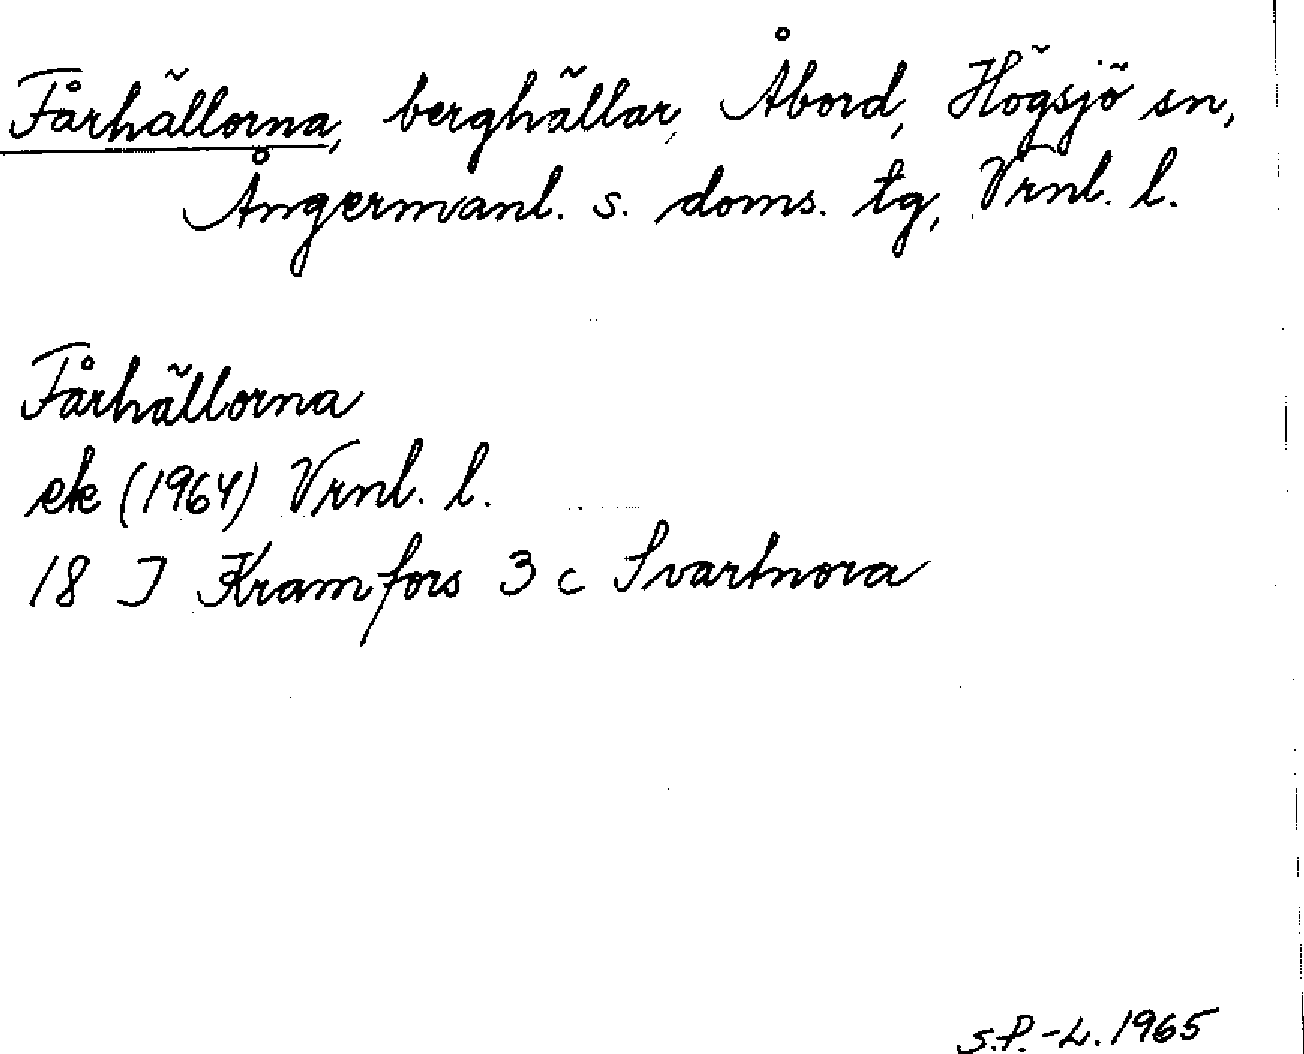 Fårhällorna, berghällar, Åbord, Högsjö sn,
Ångermanl. s. doms. tg, Vrnl. l.
Fårhällorna
ek (1964) Vrnl. l.
18 I Kramfors 3 c Svartnora
S.P.-L. 1965